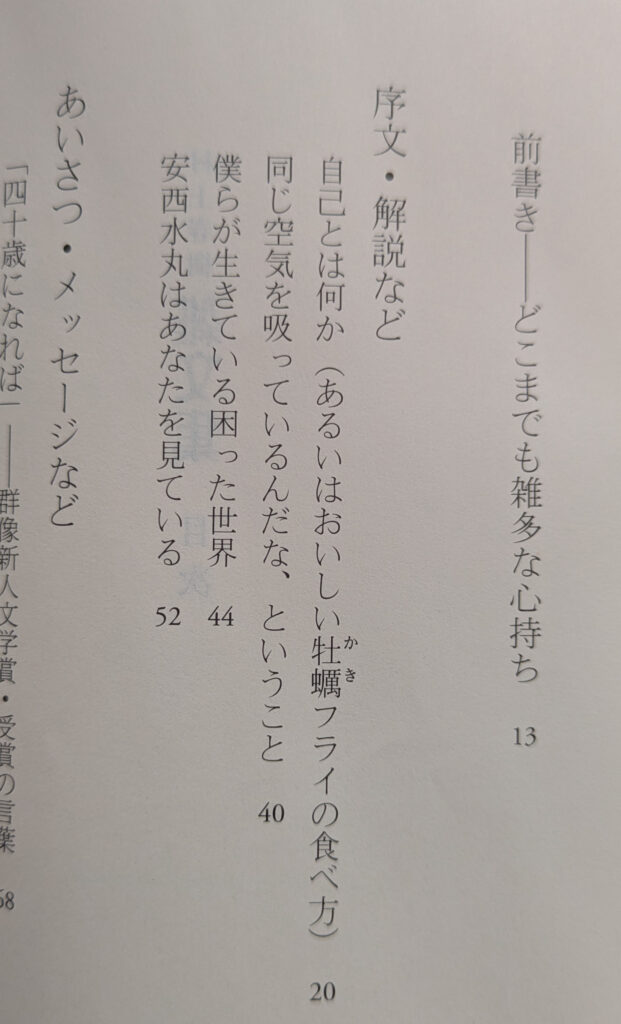 前書き——どこまでも雑多な心持ち 13
序文・解説など
自己とは何か（あるいはおいしい牡蠣フライの食べ方） 20
かき
同じ空気を吸っているんだな、ということ 40
僕らが生きている困った世界 44
安西水丸はあなたを見ている 52
あいさつ・メッセージなど
「四十歳になれば」——群像新人文学賞・受賞の言葉 68